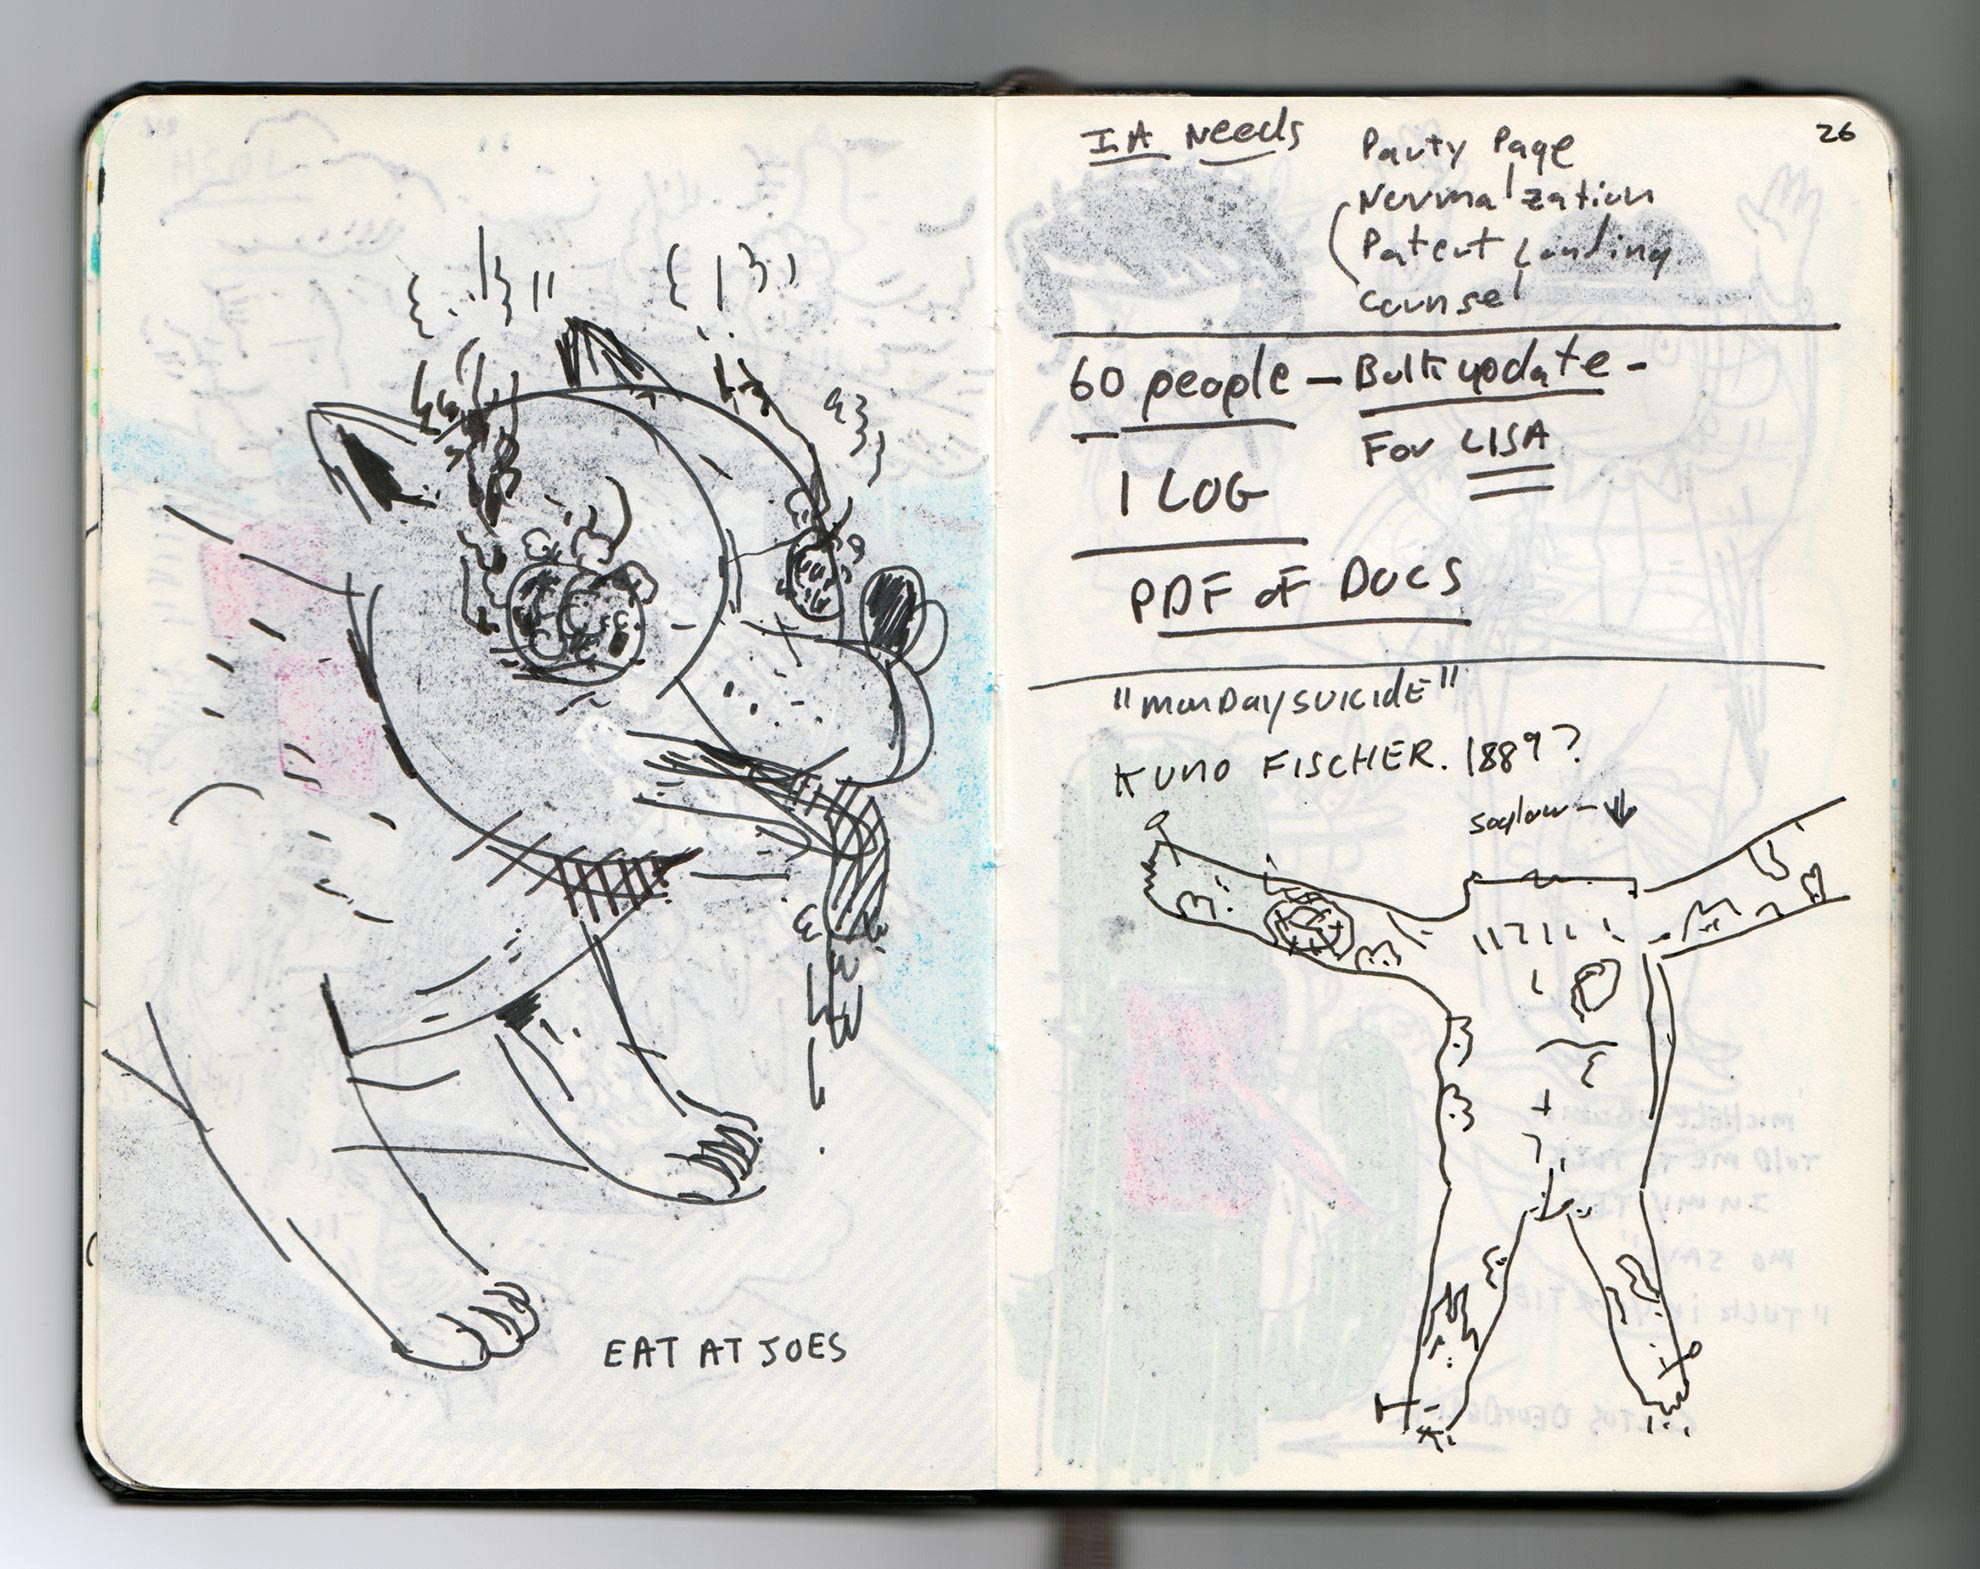 EAT AT JOES
26
IA Needs
Party Page
Normalzation
Patent Landing
Counsel
60 people – Bulk update –
For LISA
1 LOG
PDF OF DOCS
"monDaysuicidE"
KUNO FISCHER. 1889?